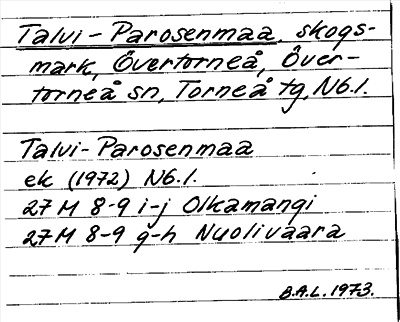 Talvi-Parosenmaa, skogs-
mark, Övertorneå, Över-
torneå sn, Torneå tg, Nb.l.
Talvi-Parosenmaa
ek (1972) Nb.l.
27M 8-9 i-j Olkamangi
27M 8-9 g-h Nuolivaara
B.A.L. 1973.